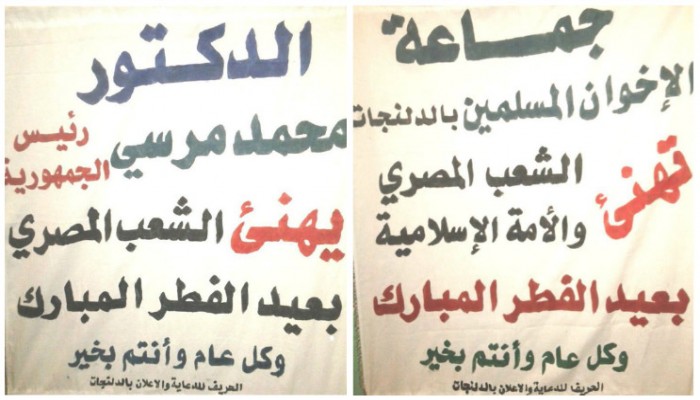 الدكتور
محمد مرسي رئيس الجمهورية
يهنئ الشعب المصري
بعيد الفطر المبارك
وكل عام وأنتم بخير
الحريف للدعاية والاعلان بالدلنجات
جماعة
الإخوان المسلمين بالدلنجات
تهنئ الشعب المصري
والأمة الإسلامية
بعيد الفطر المبارك
وكل عام وأنتم بخير
الحريف للدعاية والاعلان بالدلنجات